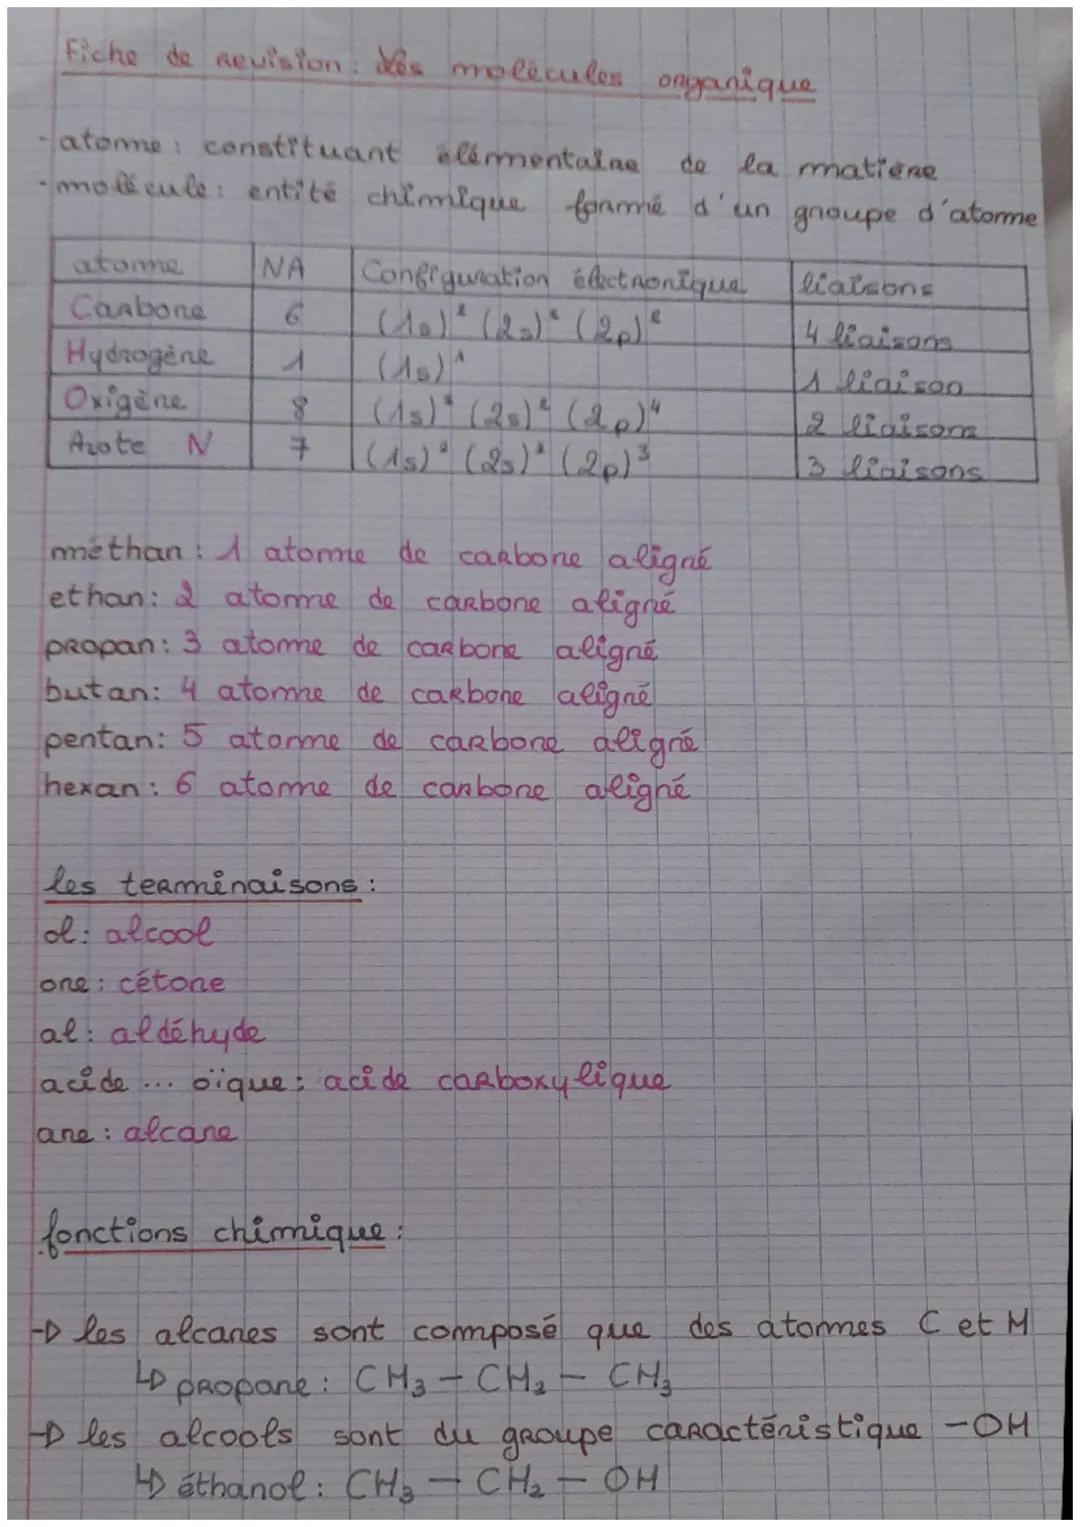 Fiche de revision : les molécules organique
- atome : constituant élémentaire de la matière
- molécule : entité chimique formé d'un groupe d'atome
atome NA Configuration électronique liaisons
Carbone 6 (1s)² (2s)² (2p)² 4 liaisons
Hydrogène 1 (1s)¹ 1 liaison
Oxigène 8 (1s)² (2s)² (2p)⁴ 2 liaisons
Azote N 7 (1s)² (2s)² (2p)³ 3 liaisons
méthan : 1 atome de carbone aligné
ethan : 2 atome de carbone aligné
propan : 3 atome de carbone aligné
butan : 4 atome de carbone aligné
pentan : 5 atome de carbone aligné
hexan : 6 atome de carbone aligné
les terminaisons :
ol : alcool
one : cétone
al : aldéhyde
acide ... oïque : acide carboxylique
ane : alcane
fonctions chimique :
→ les alcanes sont composé que des atomes C et H
↳ propane : CH₃ — CH₂ — CH₃
→ les alcools sont du groupe caractéristique -OH
↳ éthanol : CH₃ — CH₂ — OH